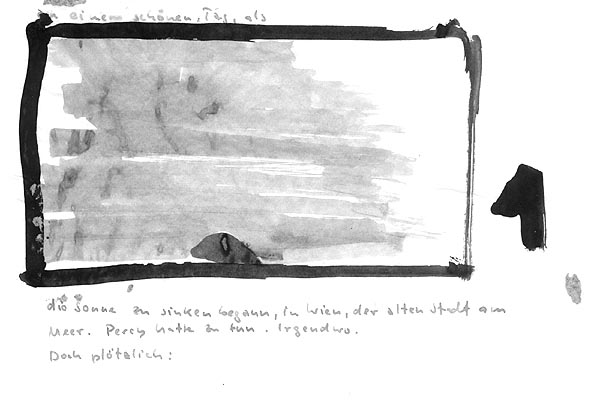 an einem schönen, Tag, als
1
die Sonne zu sinken begann, in Wien, der alten Stadt am
Meer. Percy hatte zu tun. Irgendwo.
Doch plötzlich: